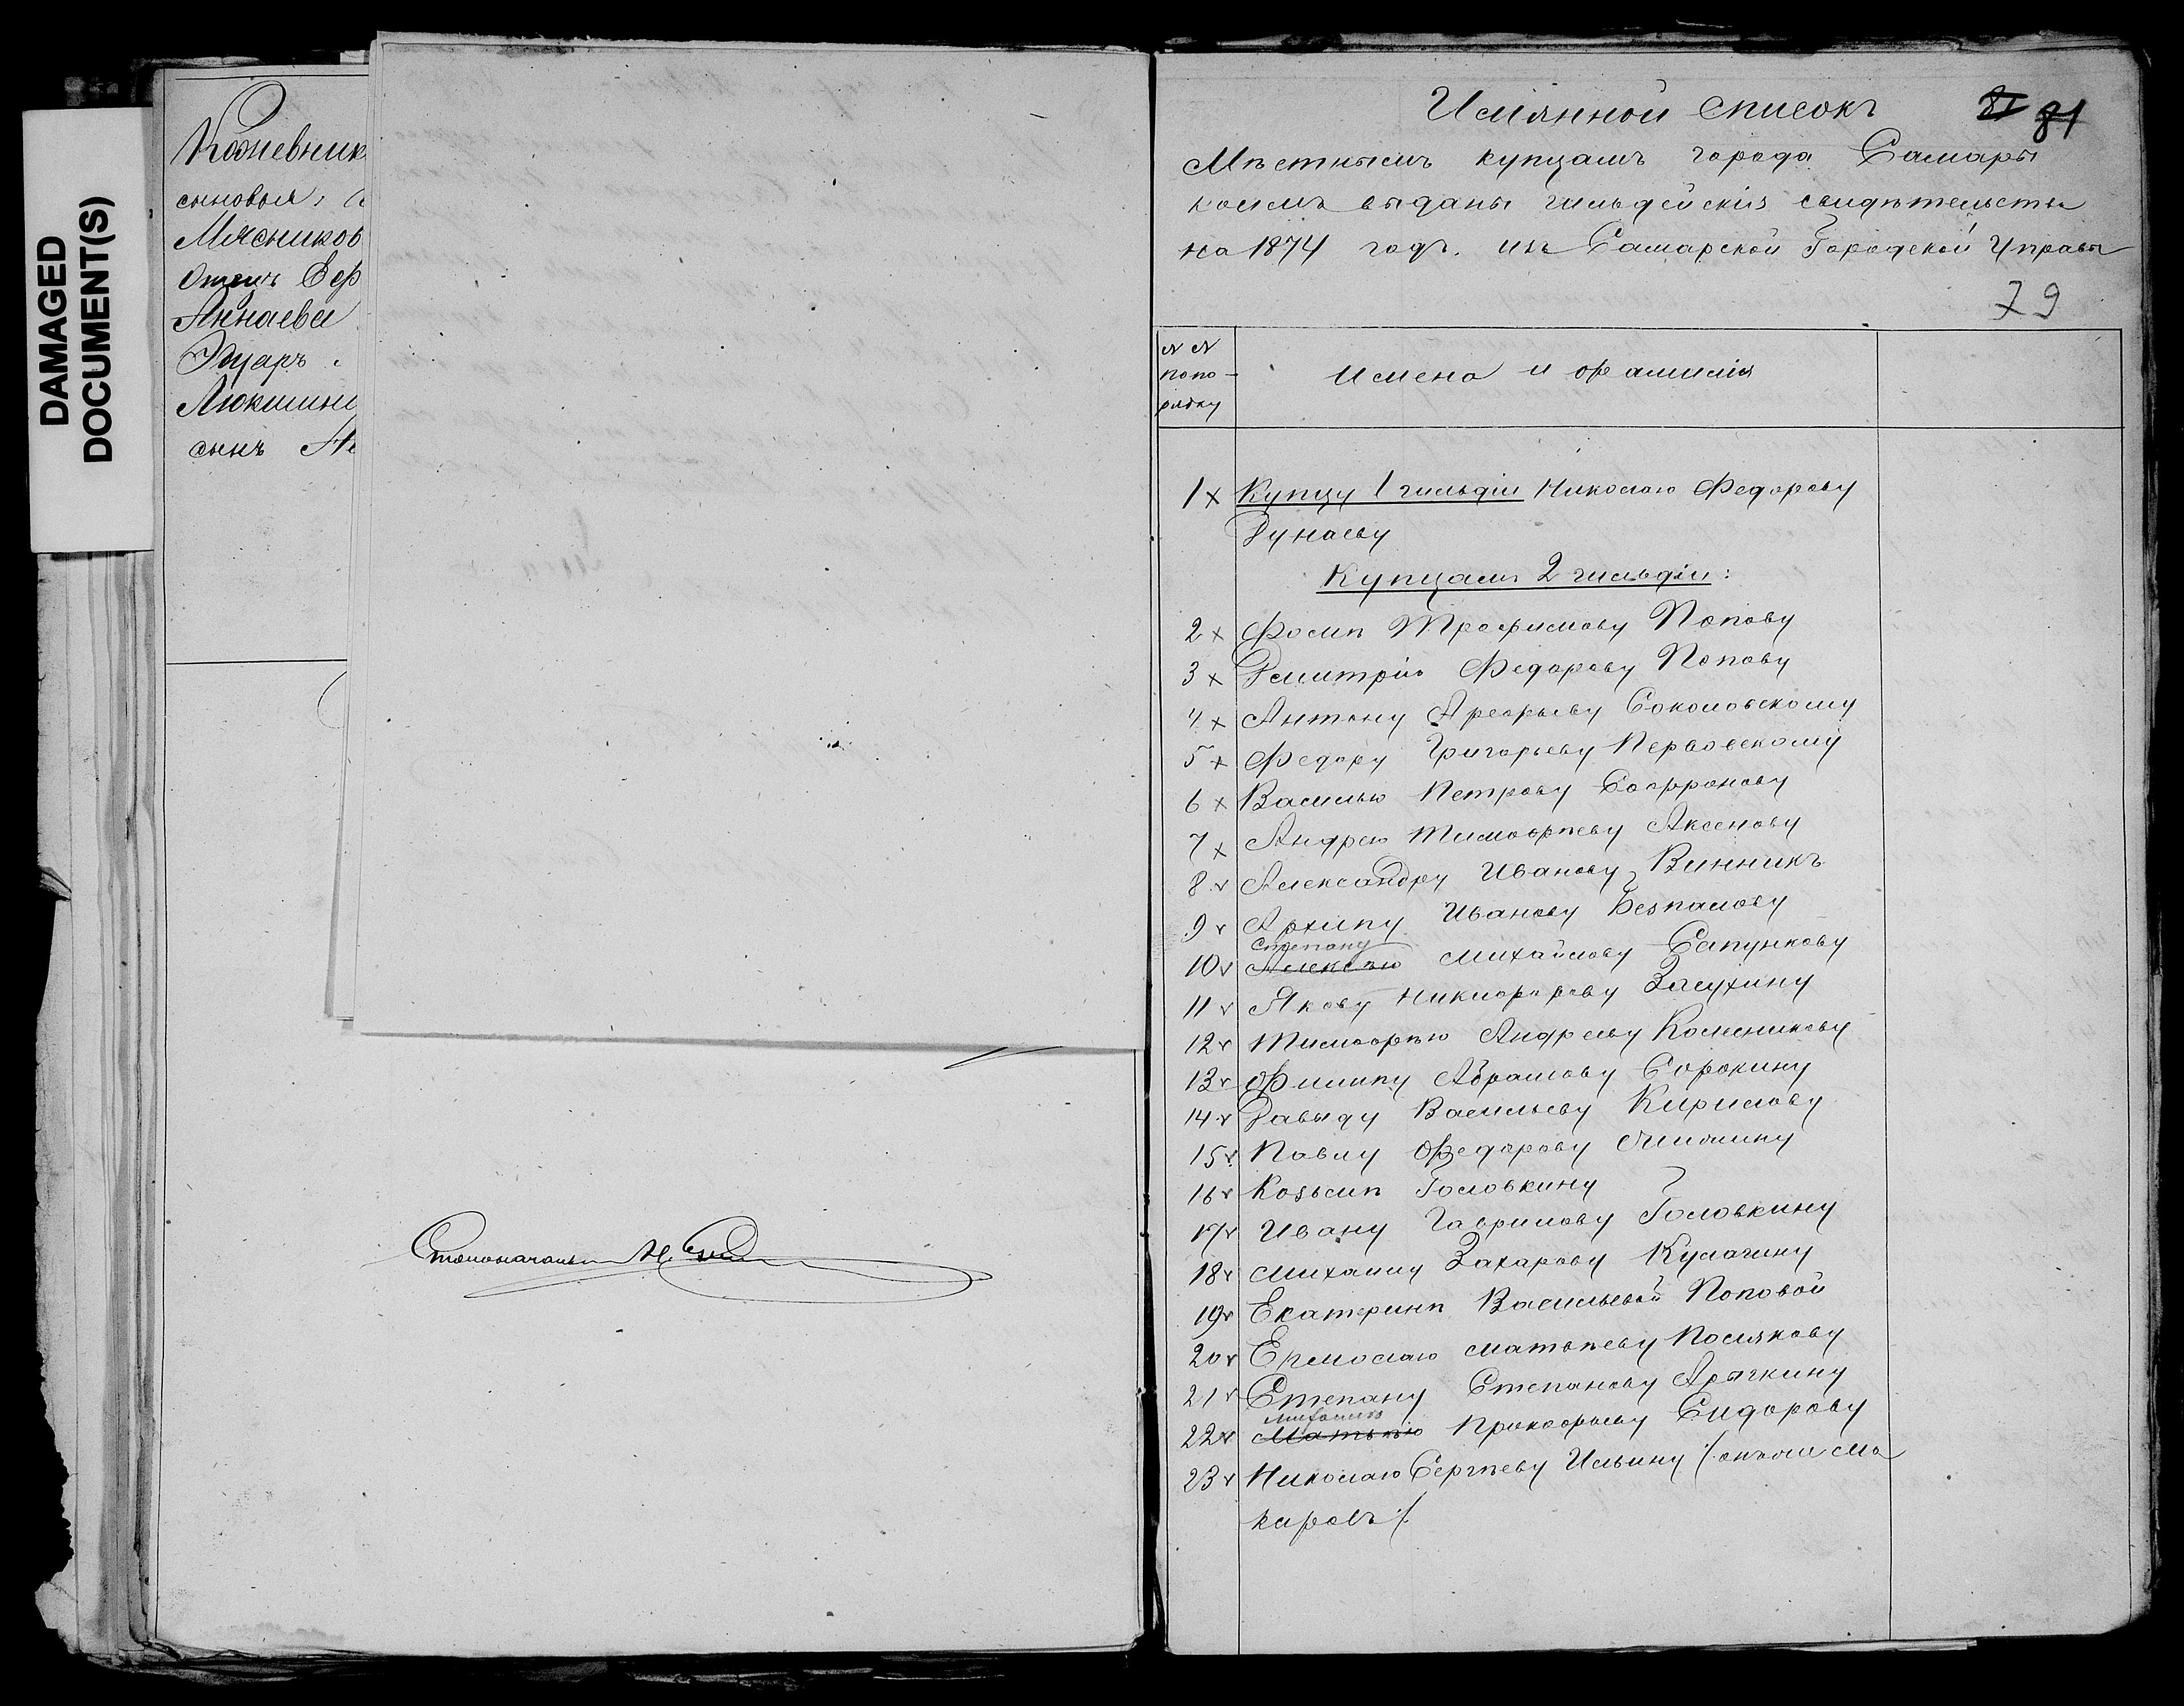 DAMAGED
DOCUMENT(S)
Кожевник
сыновья:
Мясников
Отецъ Еф
Аннаева
Эдуаръ
Люкшин
сынъ
Столоначальн
Имянной списокъ
81
Мѣстнымъ купцамъ города Самары
коимъ выданы гильдейскія свидѣтельства
на 1874 годъ. изъ Самарской Городской Управы
79
№ №
попо-
рядку
Имена и фамилія
1 х Купцу 1 гильдіи Николаю Федорову
Дунаеву
Купцамъ 2 гильдіи:
2 х Фомѣ Трофимову Попову
3 х Дмитрію Федорову Попову
4 х Антону Арефьеву Соколовскому
5 х Федору Григорьеву Перловскому
6 х Василью Петрову Сафронову
7 х Андрею Тимофѣеву Аксенову
8 v Александру Иванову Винникъ
9 v Архипу Иванову Безпалову
Степану
10 v Алексѣю Михайлову Сапункову
11 v Якову Никифорову Засухину
12 v Тимофѣю Андрееву Колесникову
13 v Филипу Абрамову Сорокину
14 v Давыду Васильеву Кирилову
15 v Павлу Федорову
16 v Козьмѣ Головкину
17 v Ивану Гаврилову Головкину
18 v Михаилу Захарову Кулагину
19 v Екатеринѣ Васильевой Поповой
20 v Ермолаю Матвѣеву Полякову
21 v Степану Степанову
22 v Матвѣю Прокофьеву Сидорову
23 v Николаю Сергѣеву Ильину /: онъже Ма
каровъ :/